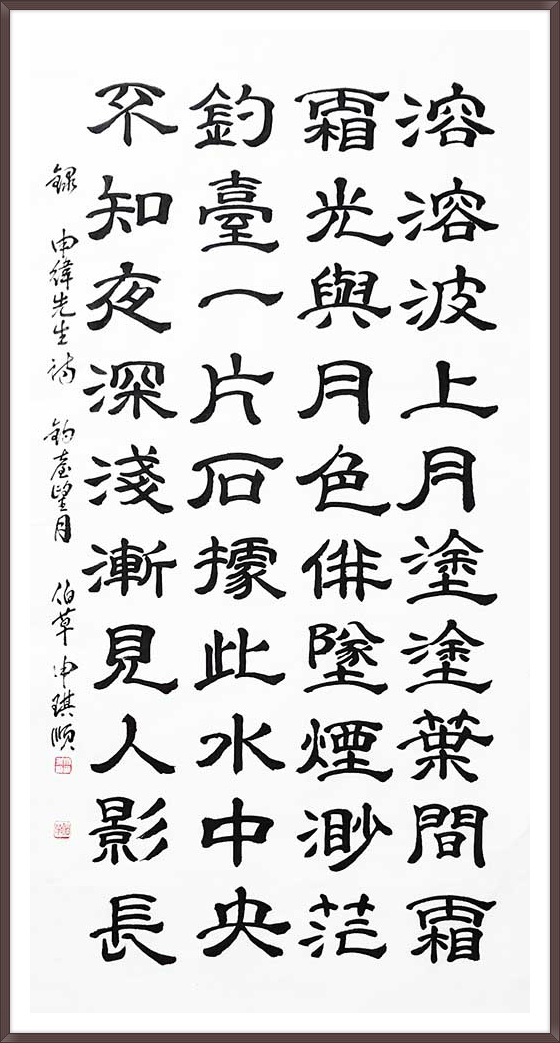 溶溶波上月塗塗葉間霜
霜光與月色俳墜煙渺茫
釣臺一片石據此水中央
不知夜深淺漸見人影長
錄 申緯先生詩 釣臺望月 伯草 申琪順